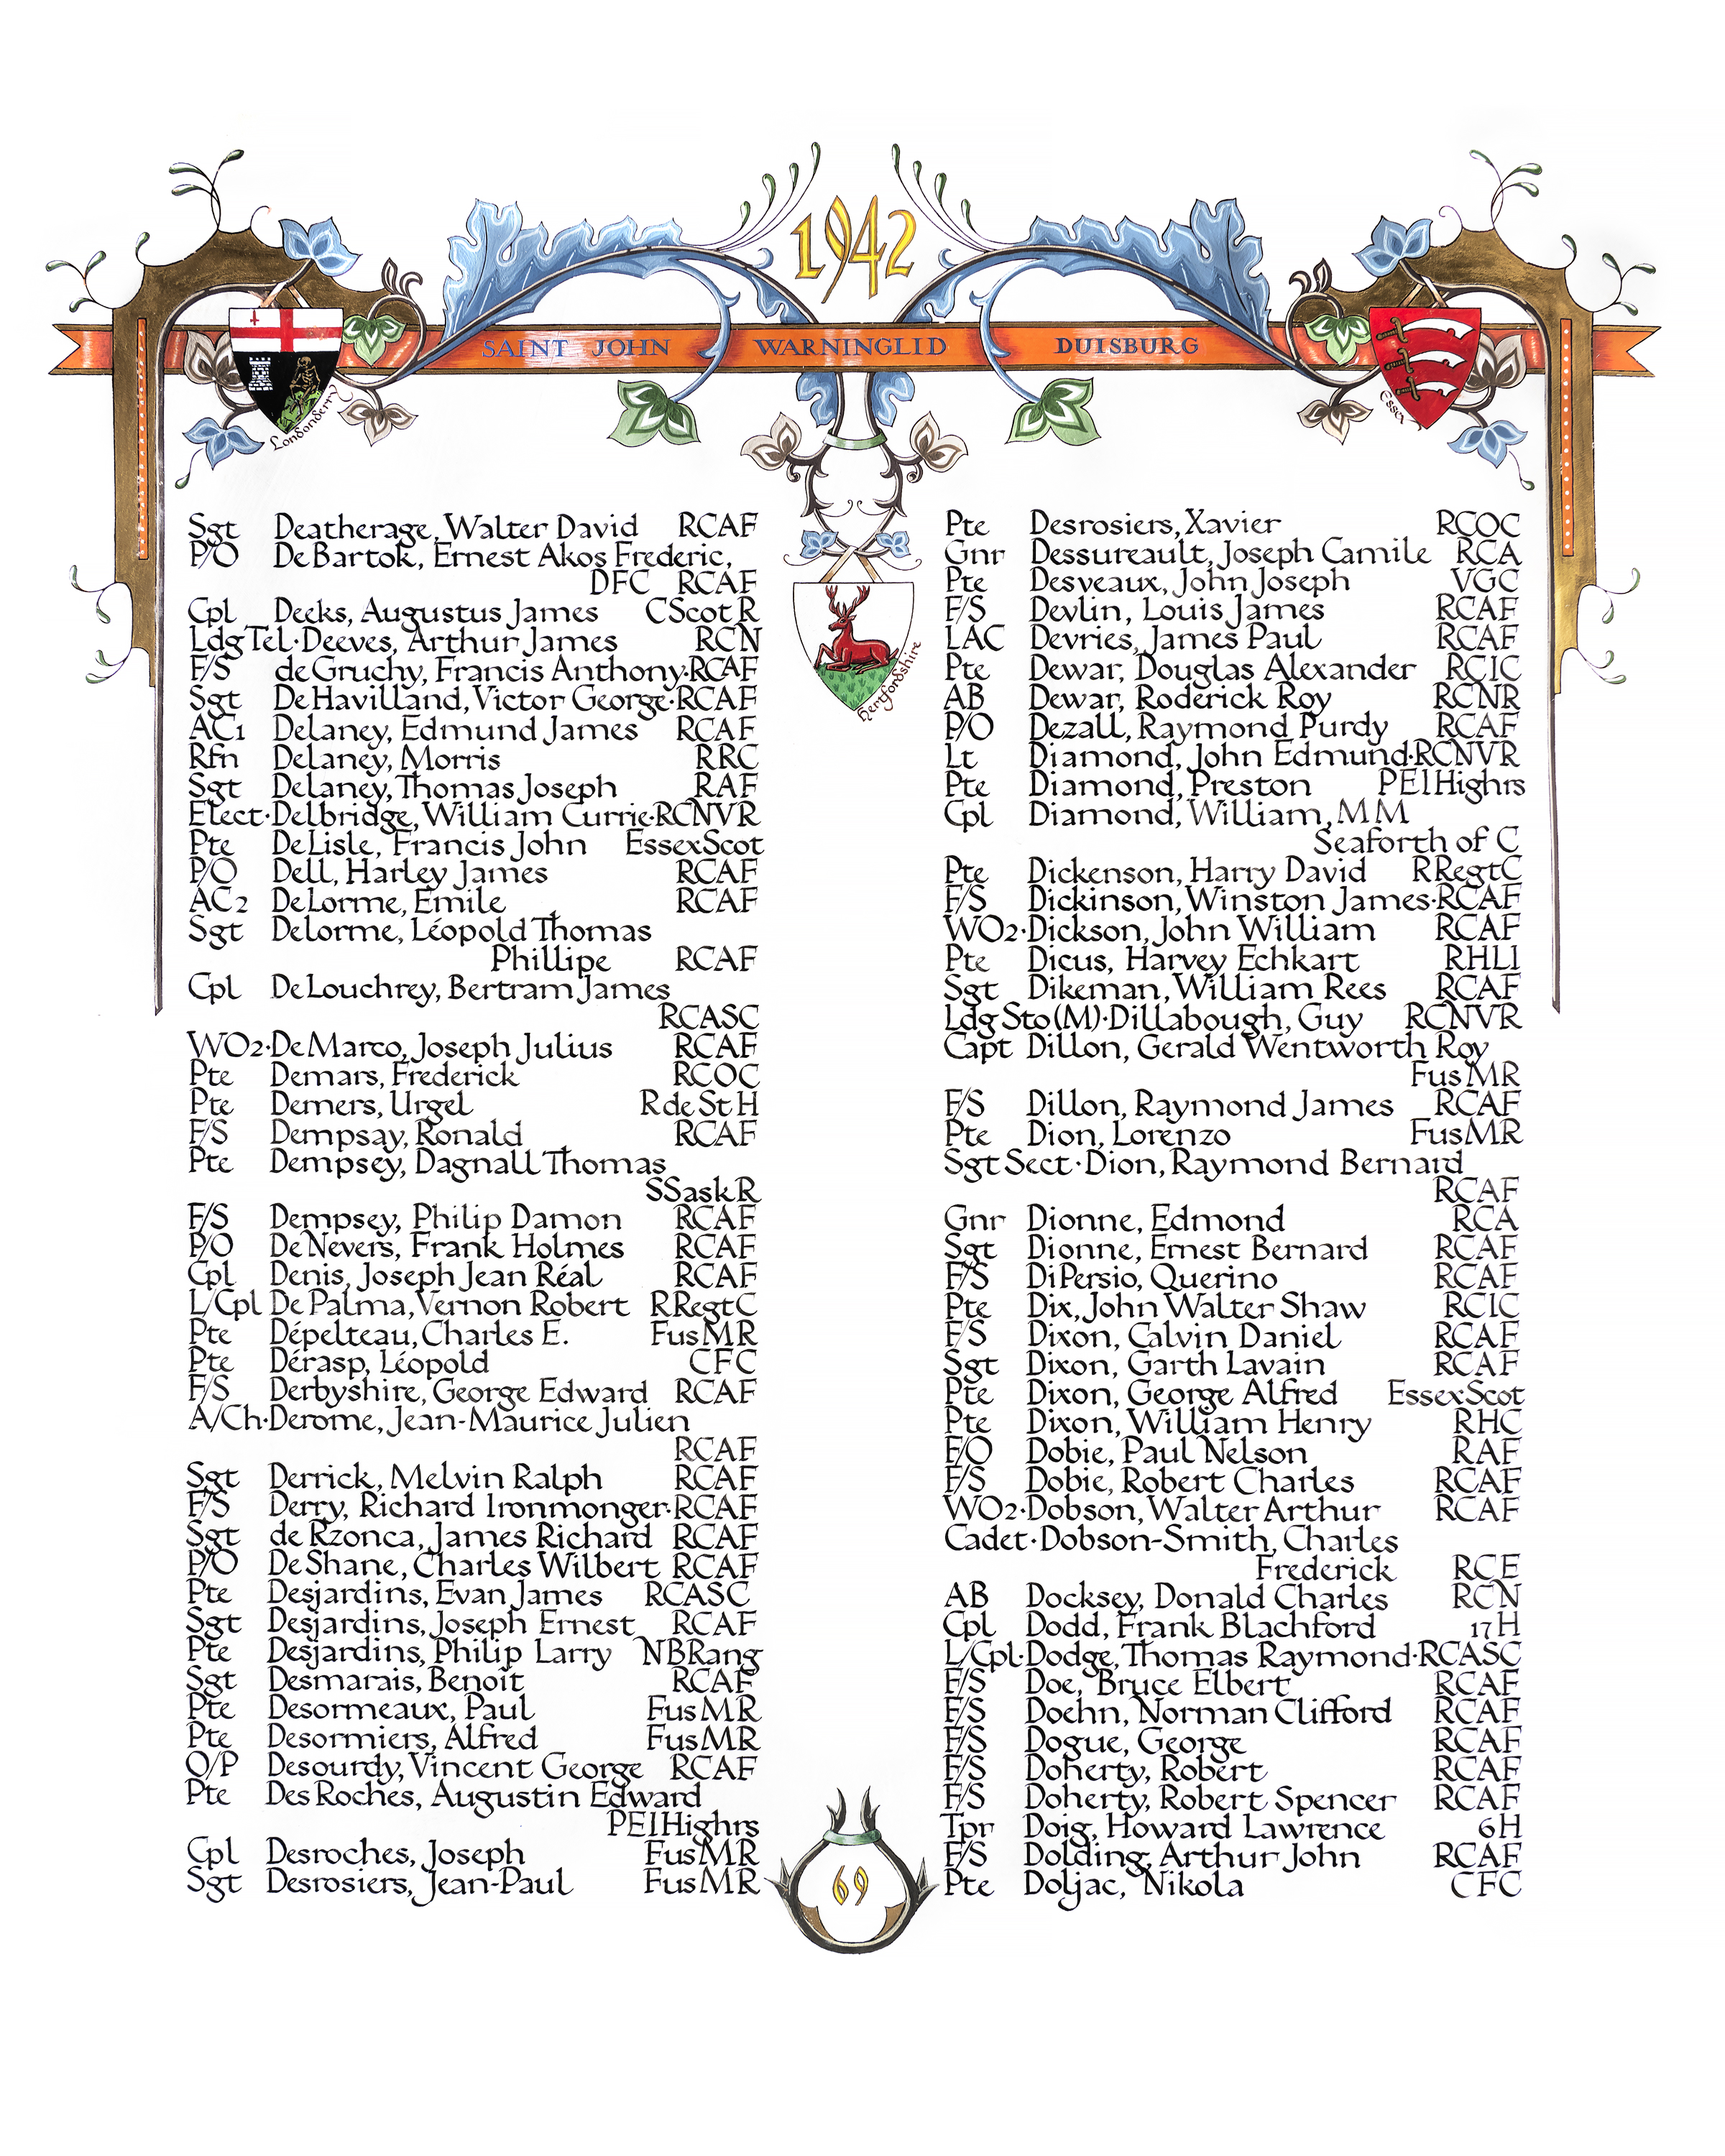 1942
SAINT JOHN WARNINGLID DUISBURG
Londonderry
Essex
Hertfordshire
Sgt Deatherage, Walter David RCAF
P/O DeBartok, Ernest Akos Frederic,
DFC RCAF
Cpl Deeks, Augustus James CScotR
LdgTel·Deeves, Arthur James RCN
F/S deGruchy, Francis Anthony·RCAF
Sgt DeHavilland, Victor George·RCAF
AC1 Delaney, Edmund James RCAF
Rfn Delaney, Morris RRC
Sgt Delaney, Thomas Joseph RAF
Elect·Delbridge, William Currie·RCNVR
Pte DeLisle, Francis John EssexScot
P/O Dell, Harley James RCAF
AC2 DeLorme, Emile RCAF
Sgt Delorme, Léopold Thomas
Phillipe RCAF
Cpl DeLouchrey, Bertram James
RCASC
WO2·DeMarco, Joseph Julius RCAF
Pte Demars, Frederick RCOC
Pte Demers, Urgel R de St H
F/S Dempsay, Ronald RCAF
Pte Dempsey, Dagnall Thomas
SSaskR
F/S Dempsey, Philip Damon RCAF
P/O DeNevers, Frank Holmes RCAF
Cpl Denis, Joseph Jean Réal RCAF
L/Cpl DePalma, Vernon Robert RRegtC
Pte Dépelteau, Charles E. FusMR
Pte Dérasp, Léopold CFC
F/S Derbyshire, George Edward RCAF
A/Ch·Derome, Jean-Maurice Julien
RCAF
Sgt Derrick, Melvin Ralph RCAF
F/S Derry, Richard Ironmonger·RCAF
Sgt de Rzonca, James Richard RCAF
P/O DeShane, Charles Wilbert RCAF
Pte Desjardins, Evan James RCASC
Sgt Desjardins, Joseph Ernest RCAF
Pte Desjardins, Philip Larry NBRang
Sgt Desmarais, Benoît RCAF
Pte Desormeaux, Paul FusMR
Pte Desormiers, Alfred FusMR
O/P Desourdy, Vincent George RCAF
Pte DesRoches, Augustin Edward
PEIHighrs
Cpl Desroches, Joseph FusMR
Sgt Desrosiers, Jean-Paul FusMR
Pte Desrosiers, Xavier RCOC
Gnr Dessureault, Joseph Camile RCA
Pte Desveaux, John Joseph VGC
F/S Devlin, Louis James RCAF
LAC Devries, James Paul RCAF
Pte Dewar, Douglas Alexander RCIC
AB Dewar, Roderick Roy RCNR
P/O Dezall, Raymond Purdy RCAF
Lt Diamond, John Edmund·RCNVR
Pte Diamond, Preston PEIHighrs
Cpl Diamond, William, MM
Seaforth of C
Pte Dickenson, Harry David RRegtC
F/S Dickinson, Winston James·RCAF
WO2·Dickson, John William RCAF
Pte Dicus, Harvey Echkart RHLI
Sgt Dikeman, William Rees RCAF
LdgSto(M)·Dillabough, Guy RCNVR
Capt Dillon, Gerald Wentworth Roy
FusMR
F/S Dillon, Raymond James RCAF
Pte Dion, Lorenzo FusMR
Sgt Sect·Dion, Raymond Bernard
RCAF
Gnr Dionne, Edmond RCA
Sgt Dionne, Ernest Bernard RCAF
F/S DiPersio, Querino RCAF
Pte Dix, John Walter Shaw RCIC
F/S Dixon, Calvin Daniel RCAF
Sgt Dixon, Garth Lavain RCAF
Pte Dixon, George Alfred EssexScot
Pte Dixon, William Henry RHC
F/O Dobie, Paul Nelson RAF
F/S Dobie, Robert Charles RCAF
WO2·Dobson, Walter Arthur RCAF
Cadet·Dobson-Smith, Charles
Frederick RCE
AB Docksey, Donald Charles RCN
Cpl Dodd, Frank Blachford 17H
L/Cpl·Dodge, Thomas Raymond·RCASC
F/S Doe, Bruce Elbert RCAF
F/S Doehn, Norman Clifford RCAF
F/S Dogue, George RCAF
F/S Doherty, Robert RCAF
F/S Doherty, Robert Spencer RCAF
Tpr Doig, Howard Lawrence 6H
F/S Dolding, Arthur John RCAF
Pte Doljac, Nikola CFC
69